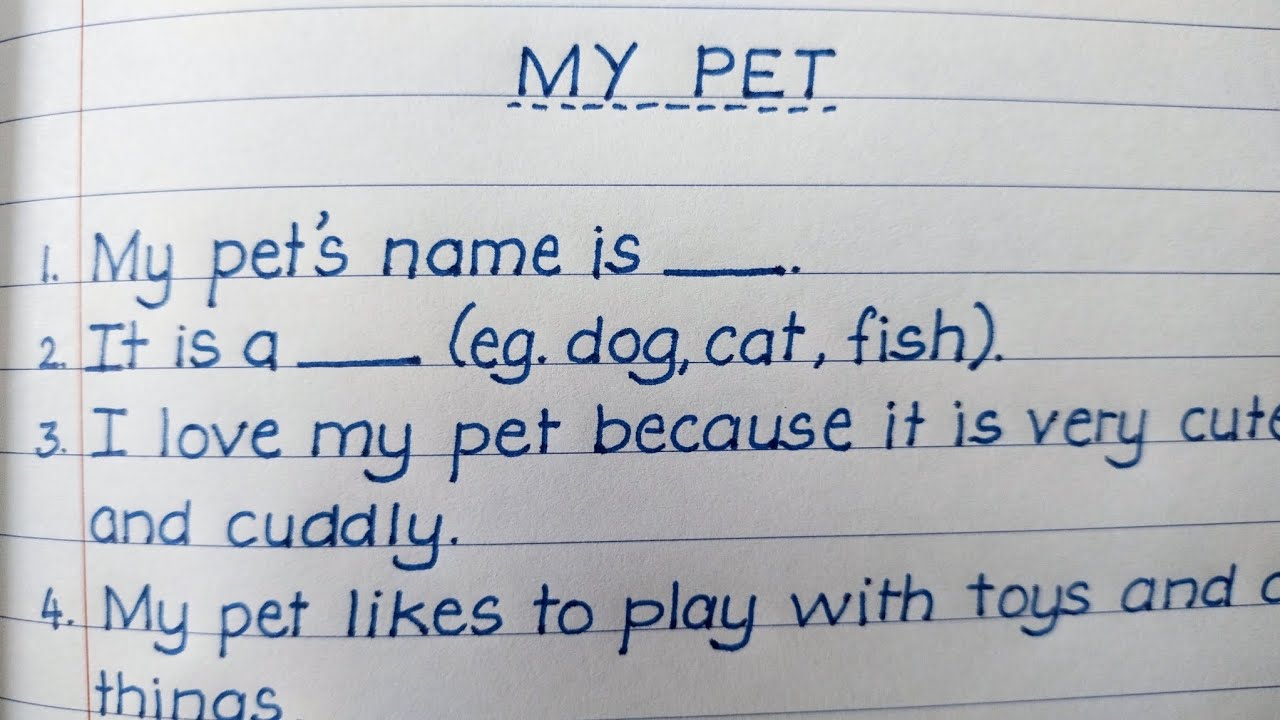 MY PET
1. My pet's name is ____.
2. It is a ____ (eg. dog, cat, fish).
3. I love my pet because it is very cute
and cuddly.
4. My pet likes to play with toys and
things